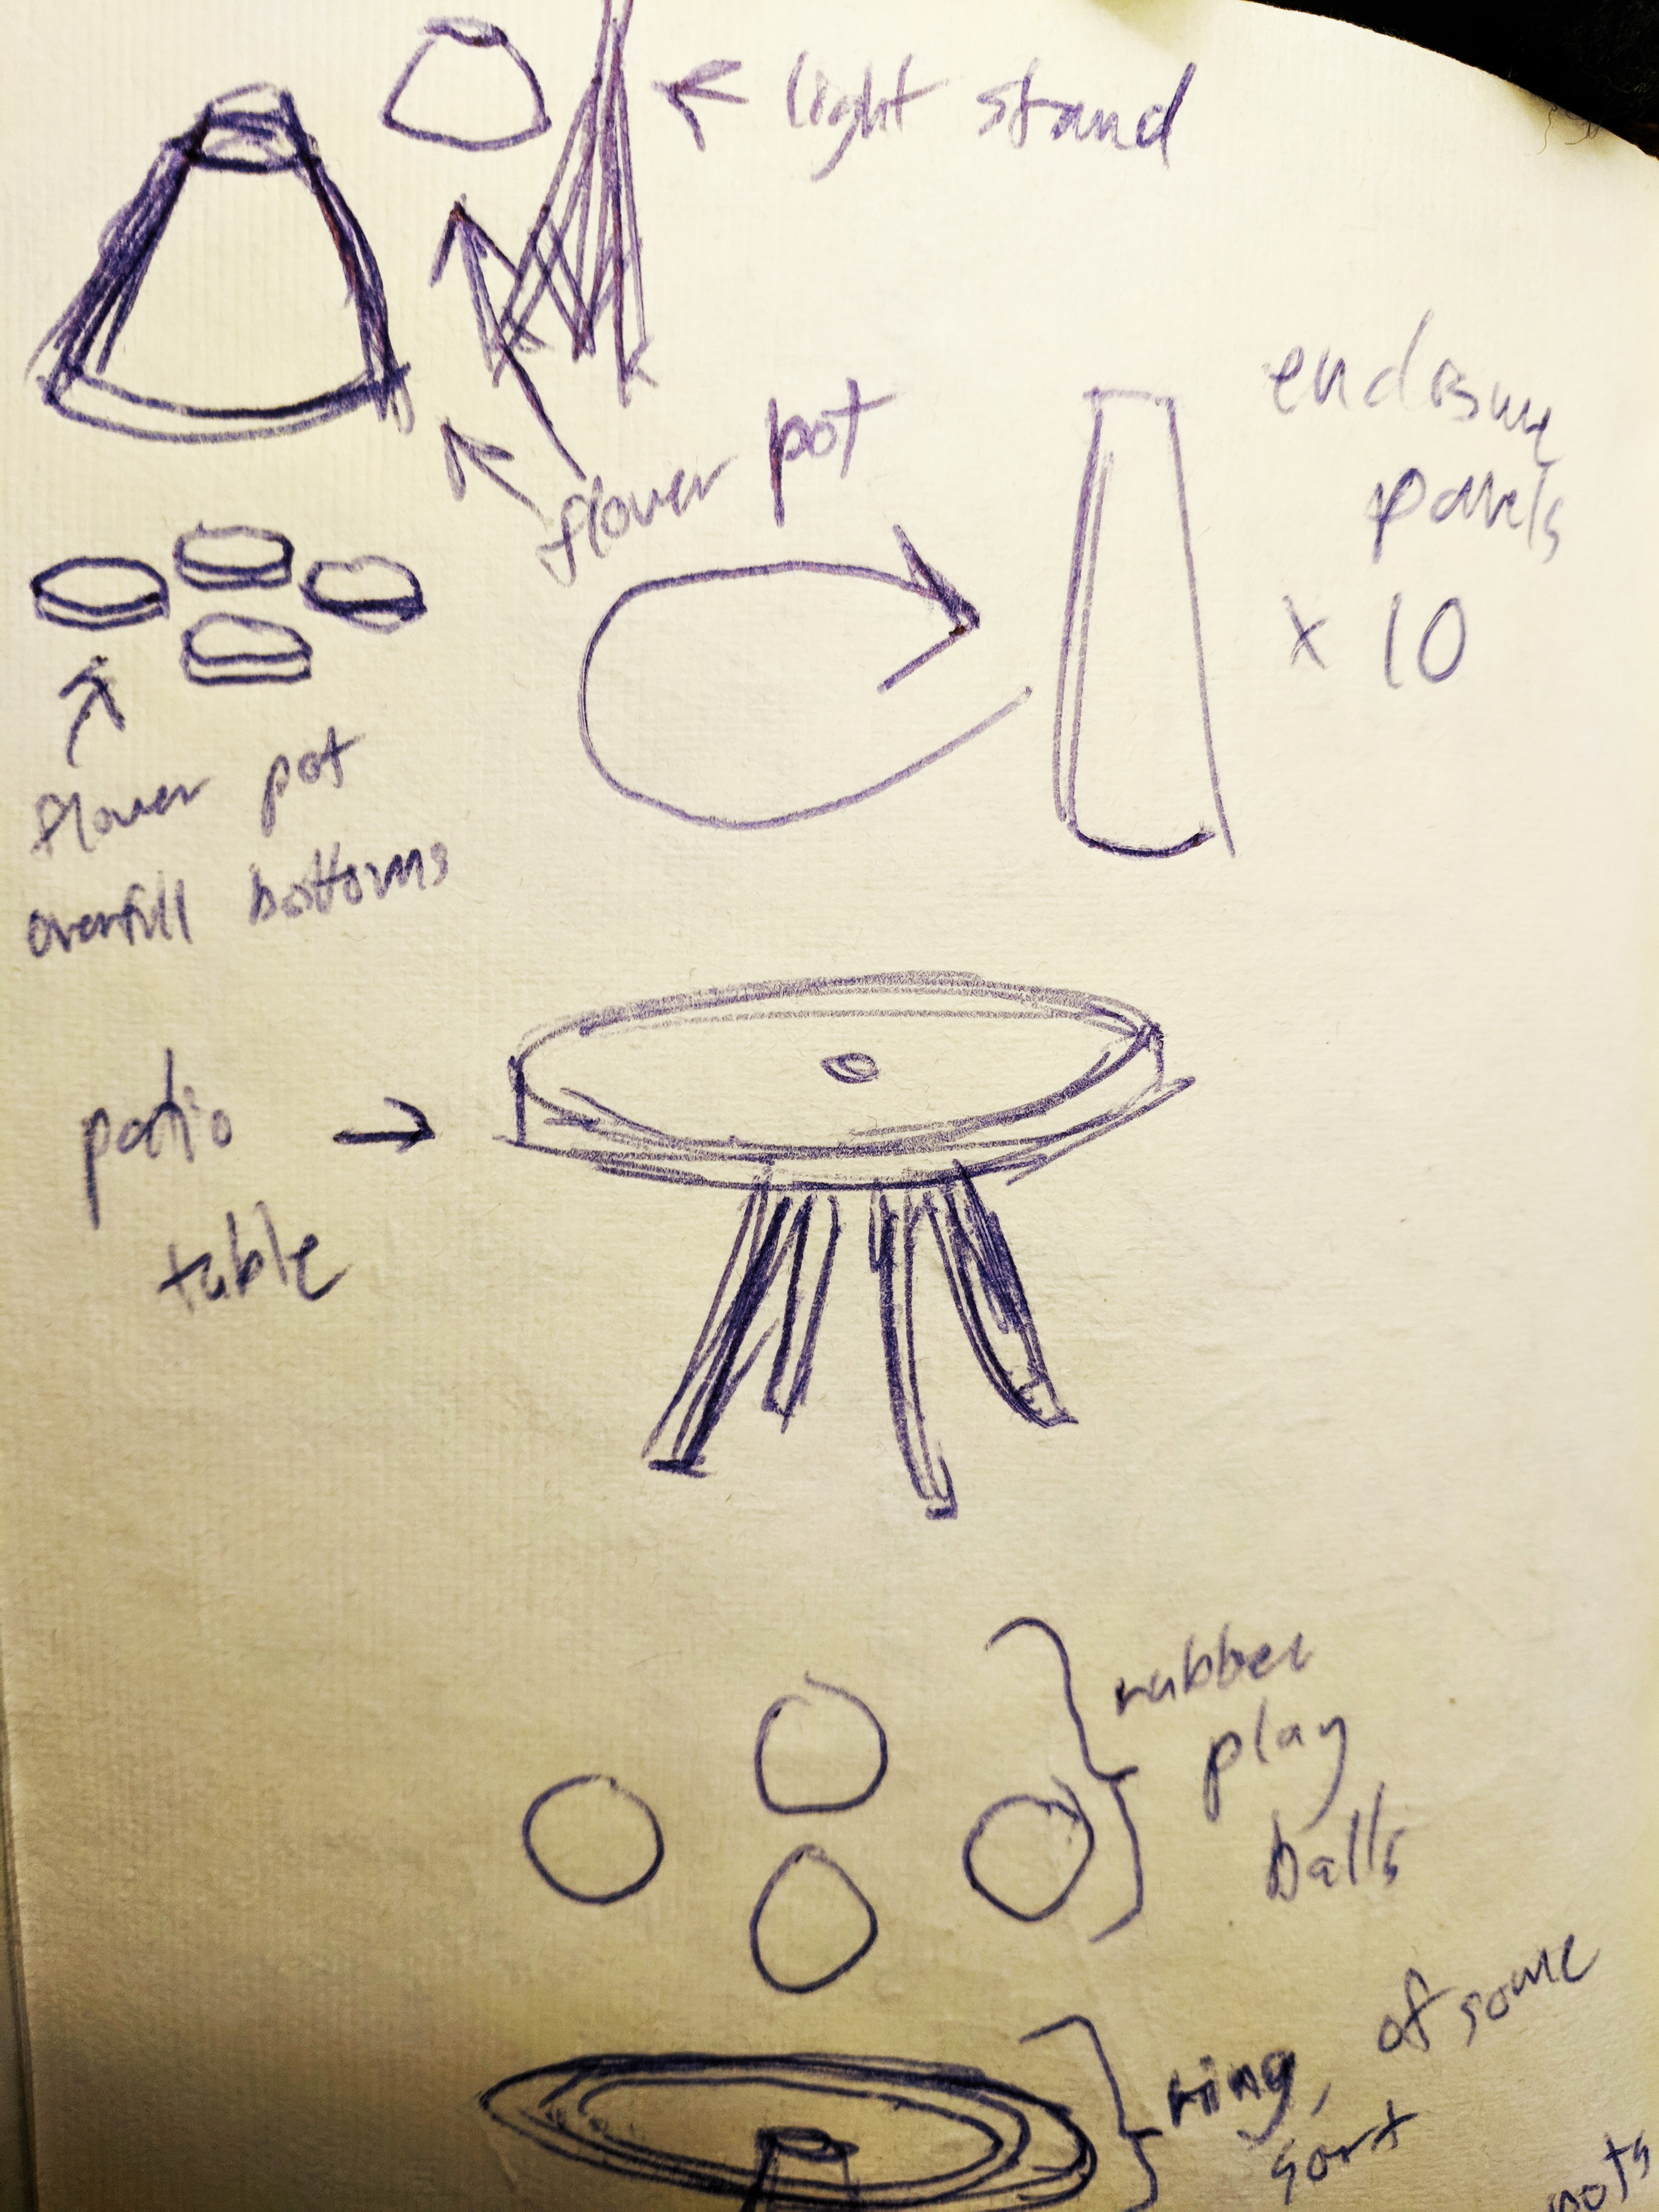 light stand
flower pot
enclosure
panels
x 10
flower pot
overfill bottoms
patio
table
rubber
play
balls
ring, of some
sort